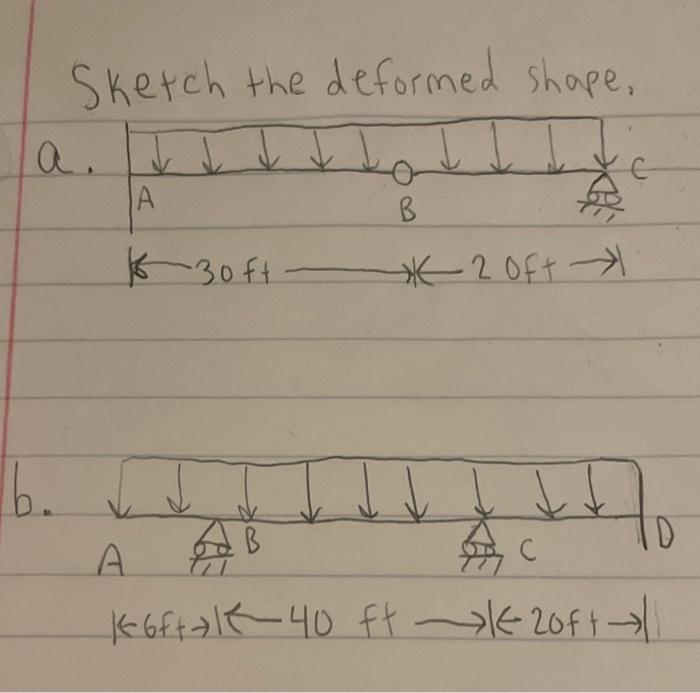 Sketch the deformed shape.
a.
A B C
30ft 20ft
b.
A B C D
6ft 40 ft 20ft